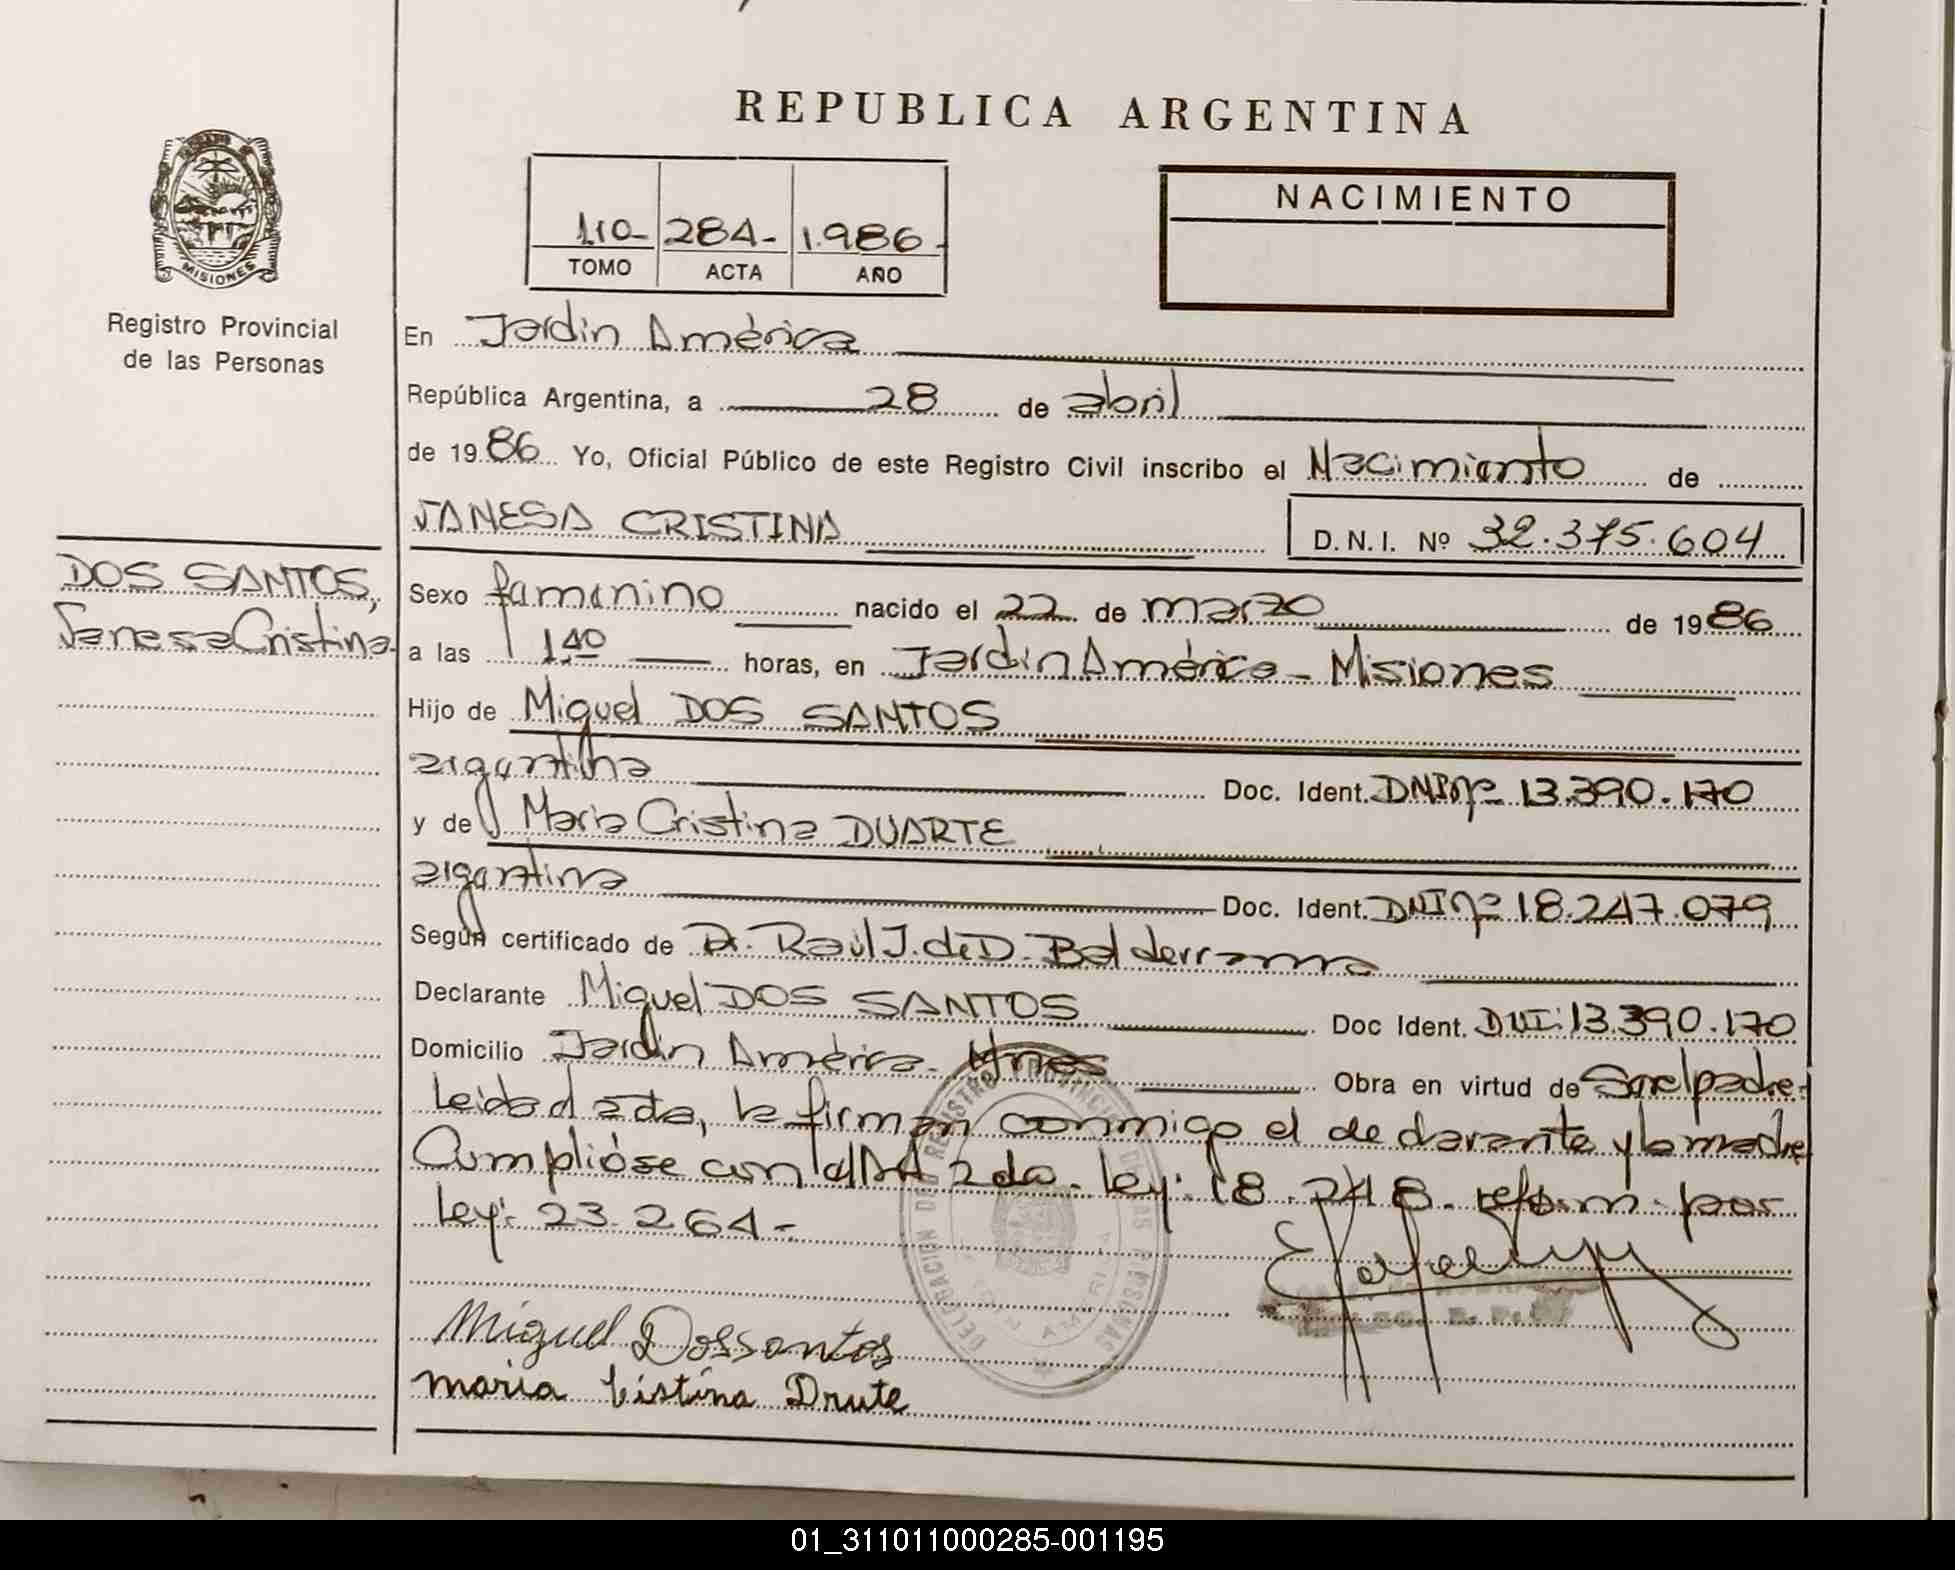 REPUBLICA ARGENTINA
MISIONES
Registro Provincial
de las Personas
110- 284- 1.986-
TOMO ACTA AÑO
NACIMIENTO
En Jardín América
República Argentina, a 28 de abril
de 1986 Yo, Oficial Público de este Registro Civil inscribo el Nacimiento de
JANESA CRISTINA
D. N. I. Nº 32.375.604
DOS SANTOS,
Janesa Cristina-
Sexo femenino nacido el 22 de marzo de 1986
a las 1,40 horas, en Jardín América - Misiones
Hijo de Miguel DOS SANTOS
argentina Doc. Ident. DNI Nº 13.390.170
y de María Cristina DUARTE
argentina Doc. Ident. DNI Nº 18.247.079
Según certificado de Dr. Raúl J. de D. Balderrama
Declarante Miguel DOS SANTOS Doc Ident. DNI: 13.390.170
Domicilio Jardín América- Mnes Obra en virtud de Ser el padre.
Leída el acta, la firman conmigo el declarante y la madre
Cumplióse con el Art 2do. ley: 18.248. reform. por
ley: 23.264-
DELEGACION DEL REGISTRO PROVINCIAL DE LAS PERSONAS
JARDIN AMERICA
Miguel Dossantos
maria Cistina Drute
01_311011000285-001195